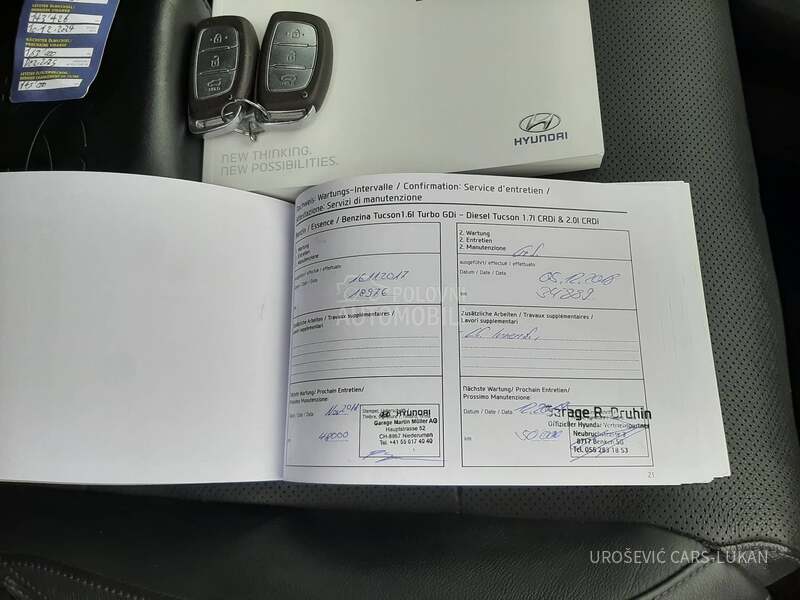 143'426
10.12.2024
NÄCHSTER ÖLWECHSEL/
153 000
DEZ 2025
HYUNDAI
NEW THINKING.
NEW POSSIBILITIES.
Wartungs-Intervalle / Confirmation: Service d'entretien /
Servizi di manutenzione
/ Essence / Benzina Tucson1.6l Turbo GDi – Diesel Tucson 1.7l CRDi & 2.0l CRDi
Wartung
Entretien
ausgeführt/ effectué / effettuato
Datum / Date / Data
16.11.2017
18976
Zusätzliche Arbeiten / Travaux supplémentaires /
Lavori supplementari
Nächste Wartung/ Prochain Entretien/
Prossimo Manutenzione:
Datum / Date / Data
48000
HYUNDAI
Garage Martin Müller AG
Hauptstrasse 52
CH-8867 Niederurnen
Tel. +41 55 617 40 40
2. Wartung
2. Entretien
2. Manutenzione
ausgeführt/ effectué / effettuato
Datum / Date / Data
05.12.2018
km
34889
Zusätzliche Arbeiten / Travaux supplémentaires /
Lavori supplementari
Nächste Wartung/ Prochain Entretien/
Prossimo Manutenzione:
Datum / Date / Data
km
50.000
Garage R. Bruhin
Offizieller Hyundai Vertriebspartner
8717 Benken SG
Tel. 055 283 18 53
21
POLOVNI
AUTOMOBILI
UROŠEVIĆ CARS-LUKAN